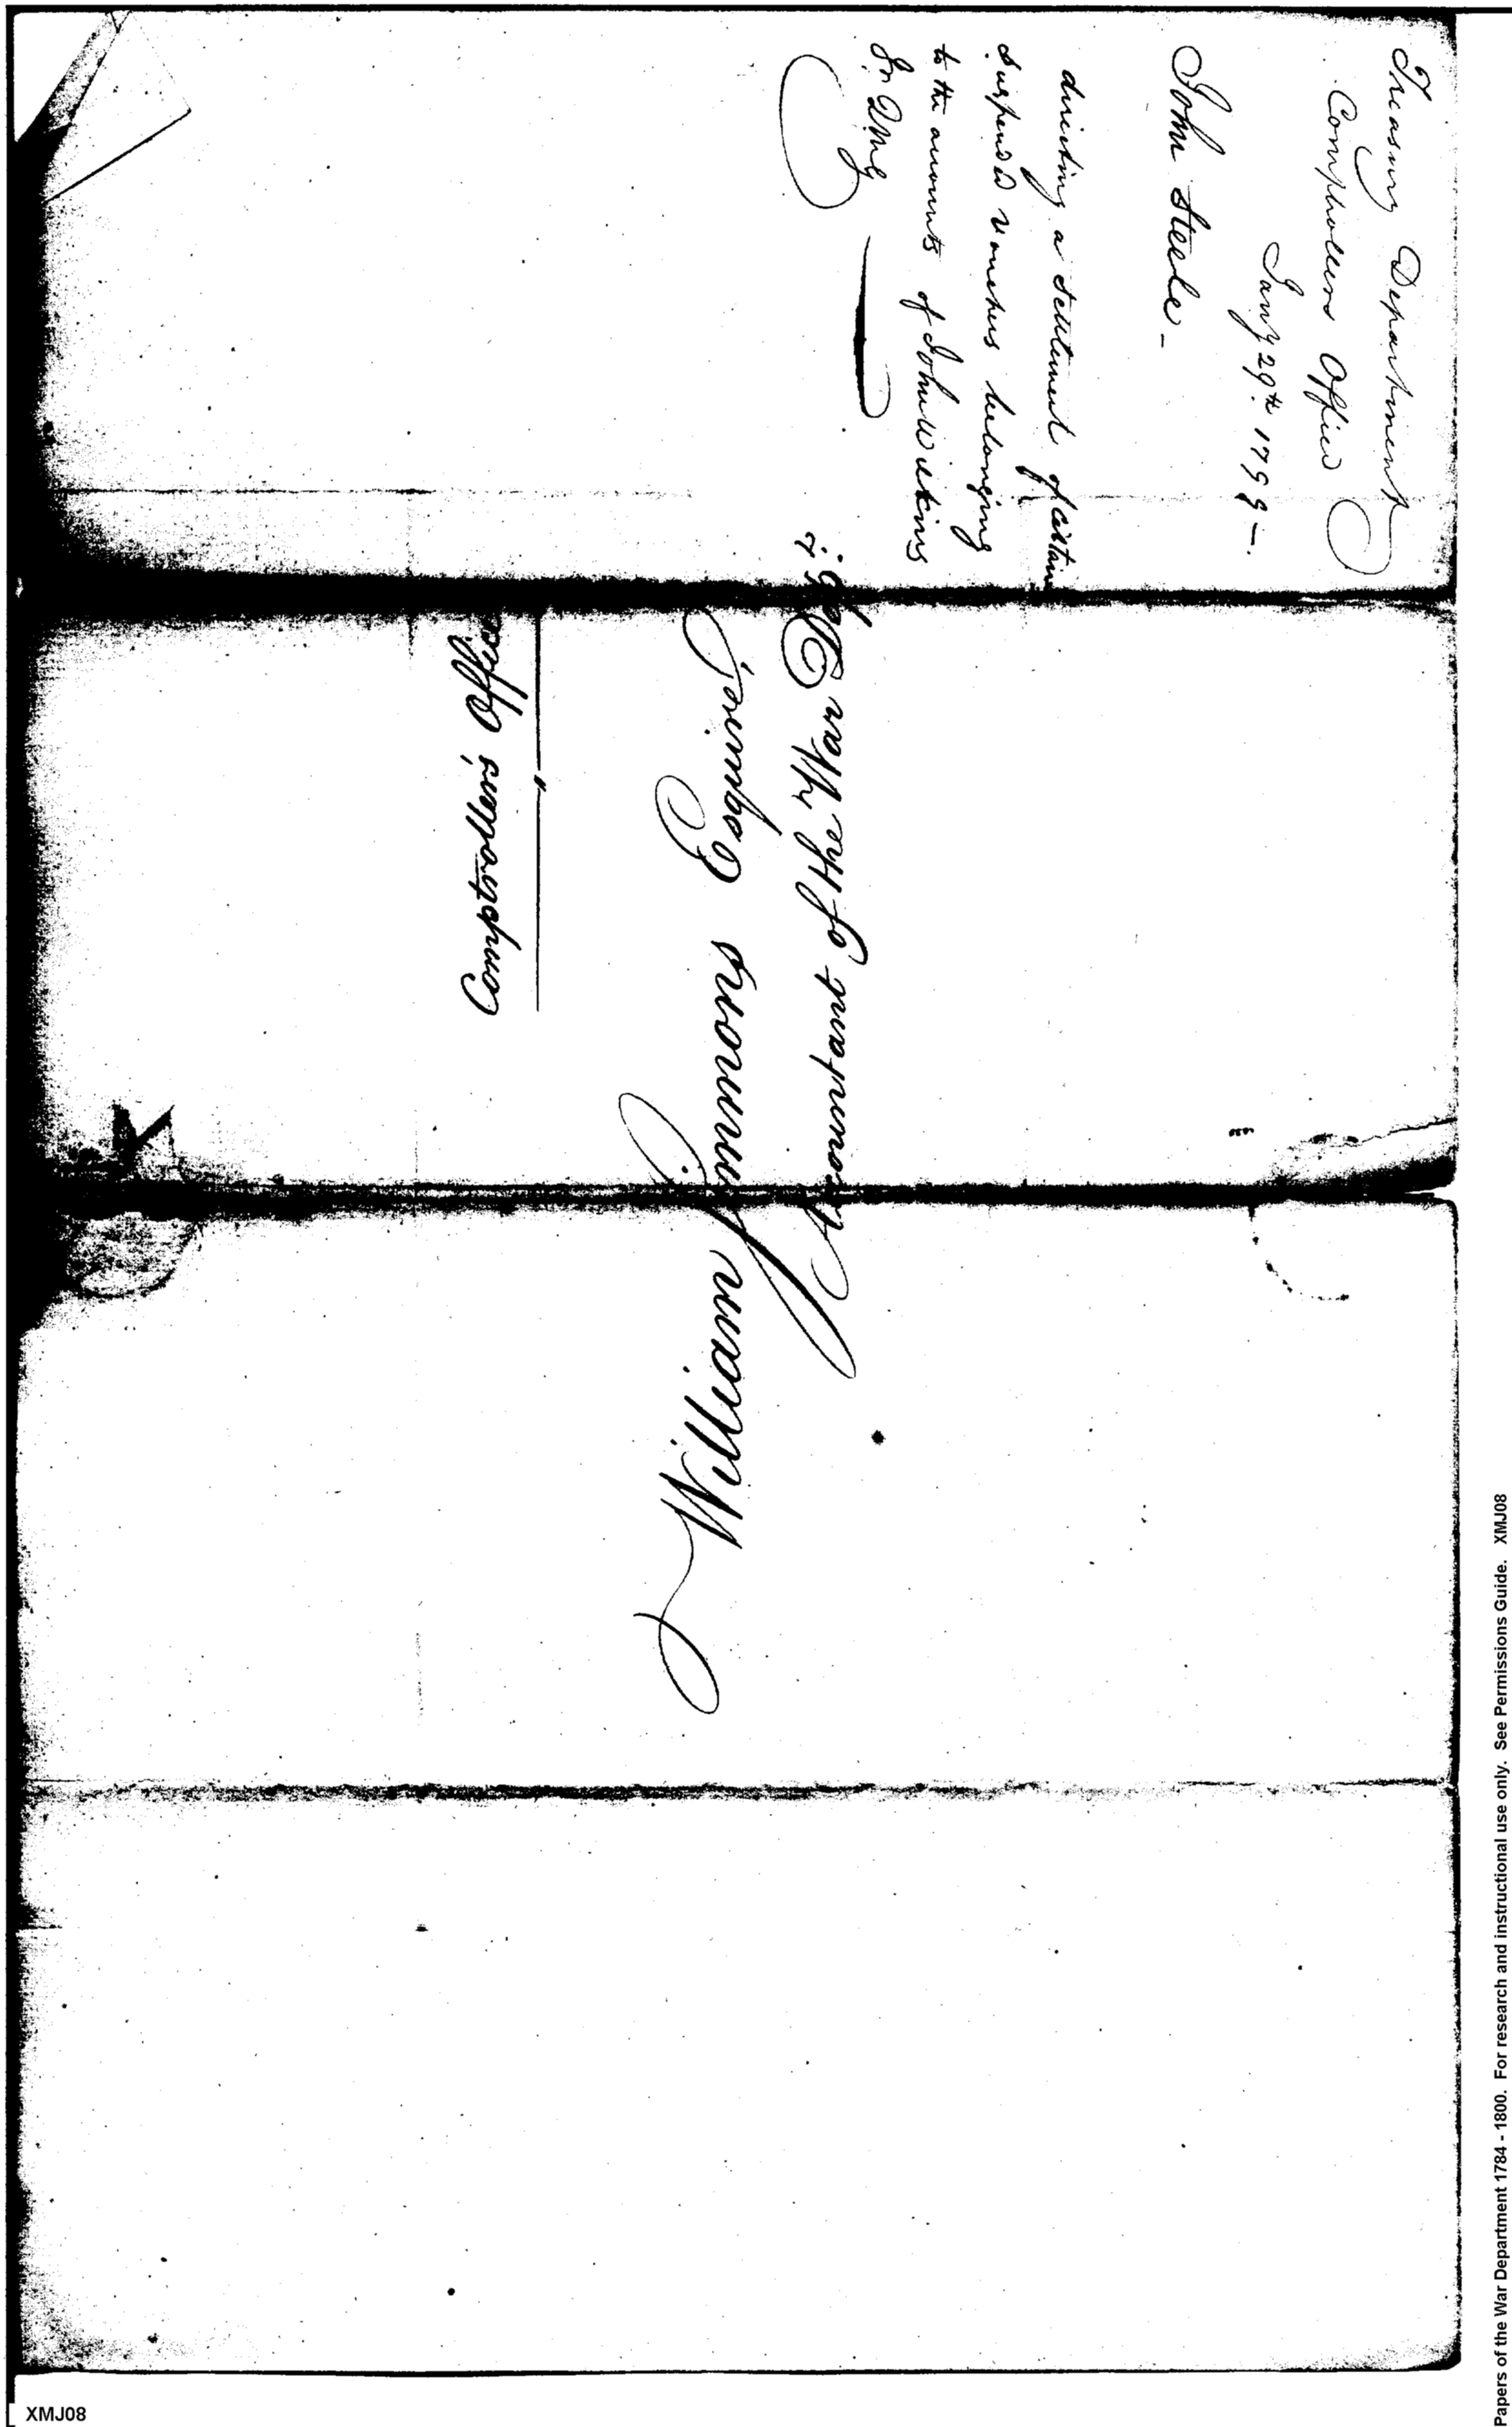 Treasury Department
Comptrollers Office
Jany 29th 1799 -
John Steele -
directing a settlement of certain
suspended vouchers belonging
to the accounts of John Wilkins
Jr QMG
William Simmons Esquire
Accountant of the War Dept.
Comptrollers Office
Papers of the War Department 1784 - 1800. For research and instructional use only. See Permissions Guide. XMJ08
XMJ08